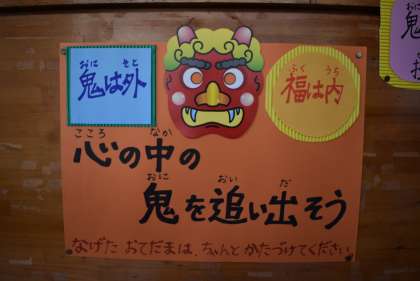 鬼は外
おに そと
福は内
ふく うち
心の中の
こころ なか
鬼を追い出そう
おに おい だ
なげた おてだまは、ちゃんと かたづけてください
鬼